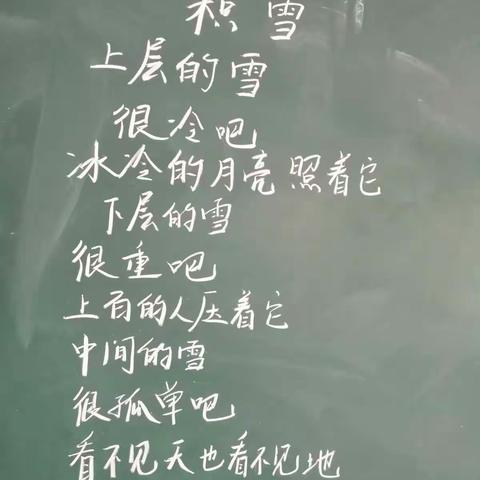 积雪
上层的雪
很冷吧
冰冷的月亮照着它
下层的雪
很重吧
上百的人压着它
中间的雪
很孤单吧
看不见天也看不见地